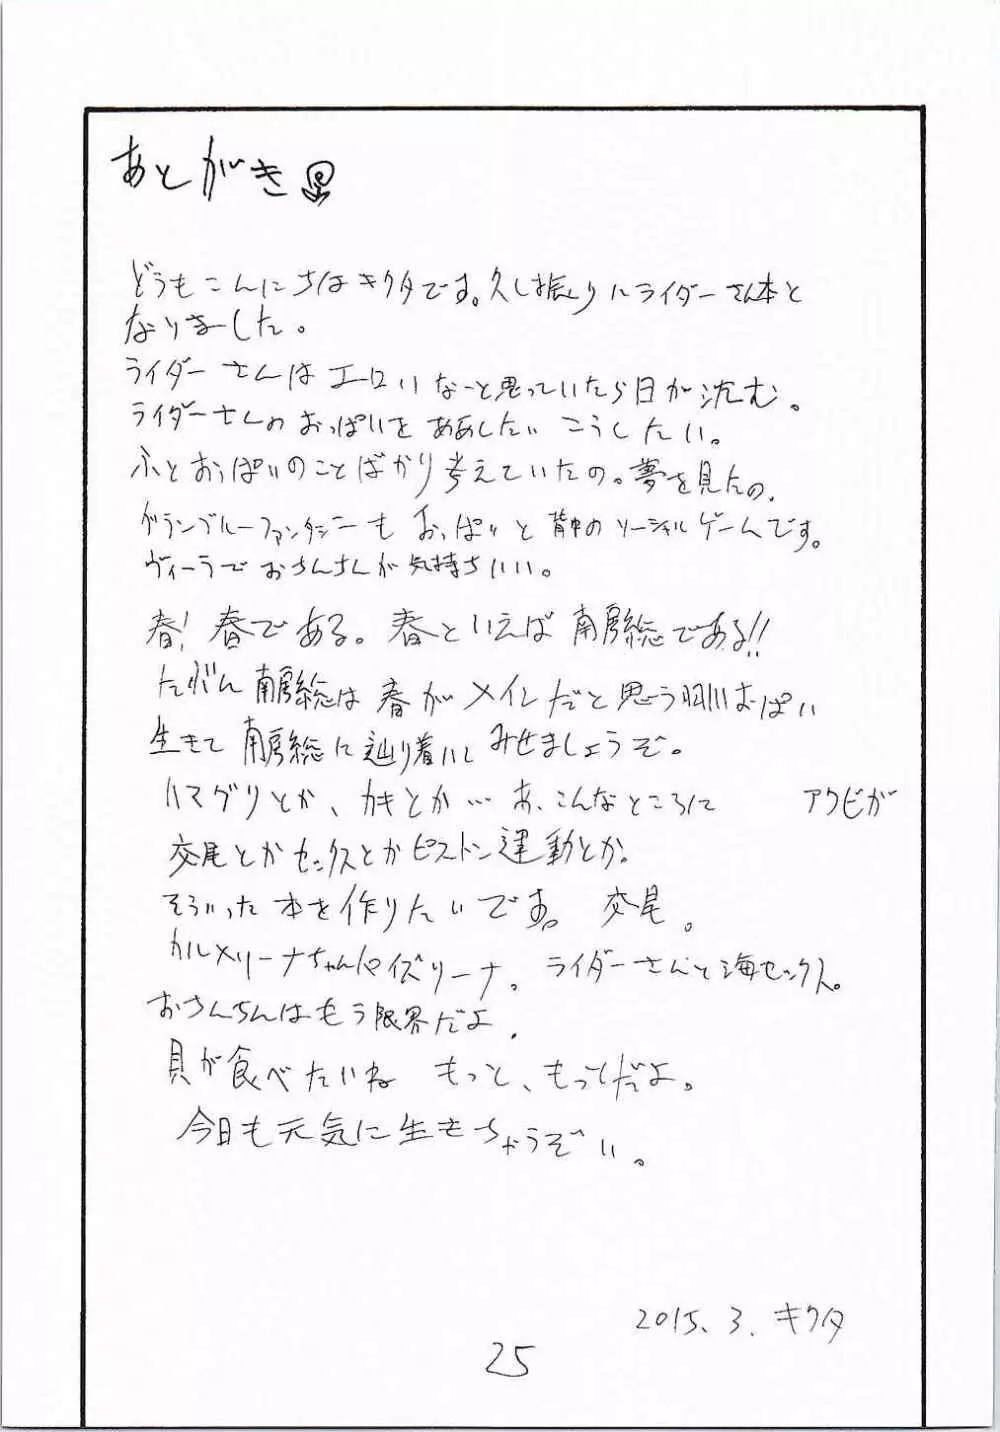 あとがき
どうもこんにちはキクタです。久し振りにライダーさん本と
なりました。
ライダーさんはエロいなーと思っていたら日が沈む。
ライダーさんのおっぱいをああしたいこうしたい。
ふとおっぱいのことばかり考えていたの。夢を見たの.
グランブルーファンタジーもおっぱいと背中のソーシャルゲームです。
ヴィーラでおちんちんが気持ちいい。
春! 春である。春といえば南房総である!!
たぶん南房総は春がメインだと思う おっぱい
生きて南房総に辿り着いてみせましょうぞ。
ハマグリとか、カキとか… あ、こんなところに アワビが
交尾とかセックスとかピストン運動とか。
そういった本を作りたいです。 交尾。
カルメリーナちゃんパイズリーナ。 ライダーさんと海セックス。
おちんちんはもう限界だよ.
貝が食べたいね もっと、もっとだよ。
今日も元気に生きちゃうぞい。
2015. 3. キクタ
25